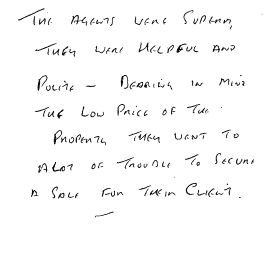 THE AGENTS WERE SUPERB,
THEY WERE HELPFUL AND
POLITE – BEARING IN MIND
THE LOW PRICE OF THE
PROPERTY THEY WENT TO
ALOT OF TROUBLE TO SECURE
A SALE FOR THEIR CLIENT.